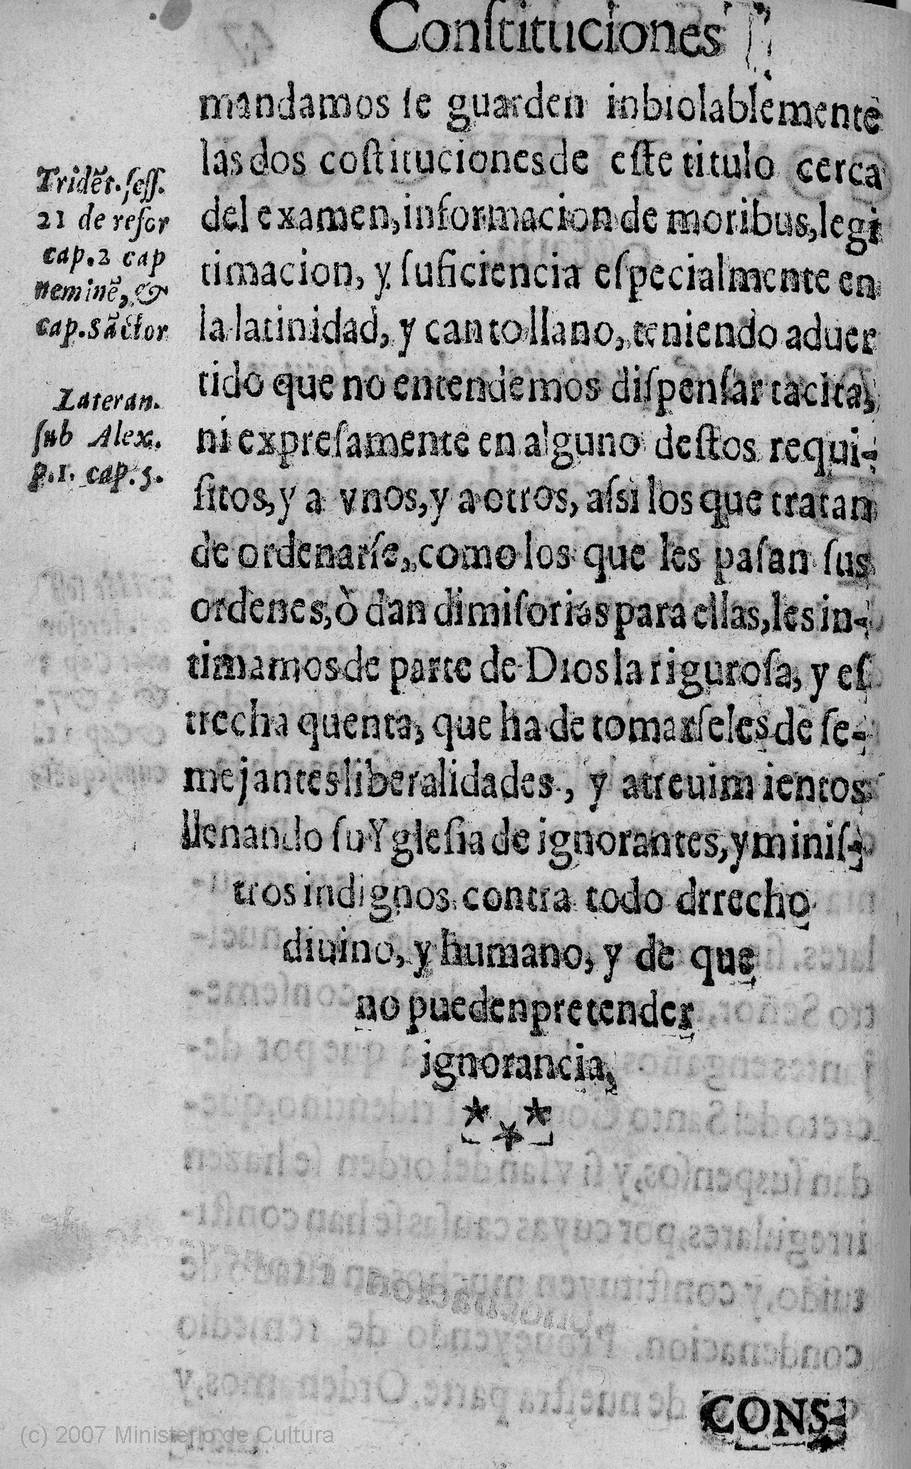 Conſtituciones
mandamos ſe guarden inbiolablemente
las dos coſtituciones de eſte titulo cerca
del examen, informacion de moribus, legi
timacion, y ſuficiencia eſpecialmente en
la latinidad, y canto llano, teniendo aduer
tido que no entendemos diſpenſar tacita,
ni expreſamente en alguno deſtos requi-
ſitos, y a vnos, y a otros, aſsi los que tratan
de ordenarſe, como los que les paſan ſus
ordenes, ò dan dimiſorias para ellas, les in-
timamos de parte de Dios la riguroſa, y eſ
trecha quenta, que ha de tomarſeles de ſe-
mejantes liberalidades, y atreuimientos
llenando ſu Ygleſia de ignorantes, y miniſ-
tros indignos contra todo drrecho
diuino, y humano, y de que
no pueden pretender
ignorancia,
Tridēt. ſeſſ.
21 de refor
cap. 2 cap
neminē, &
cap. sāctor
Lateran.
ſub Alex.
p. 1. cap. 5.
CONS-
(c) 2007 Ministerio de Cultura